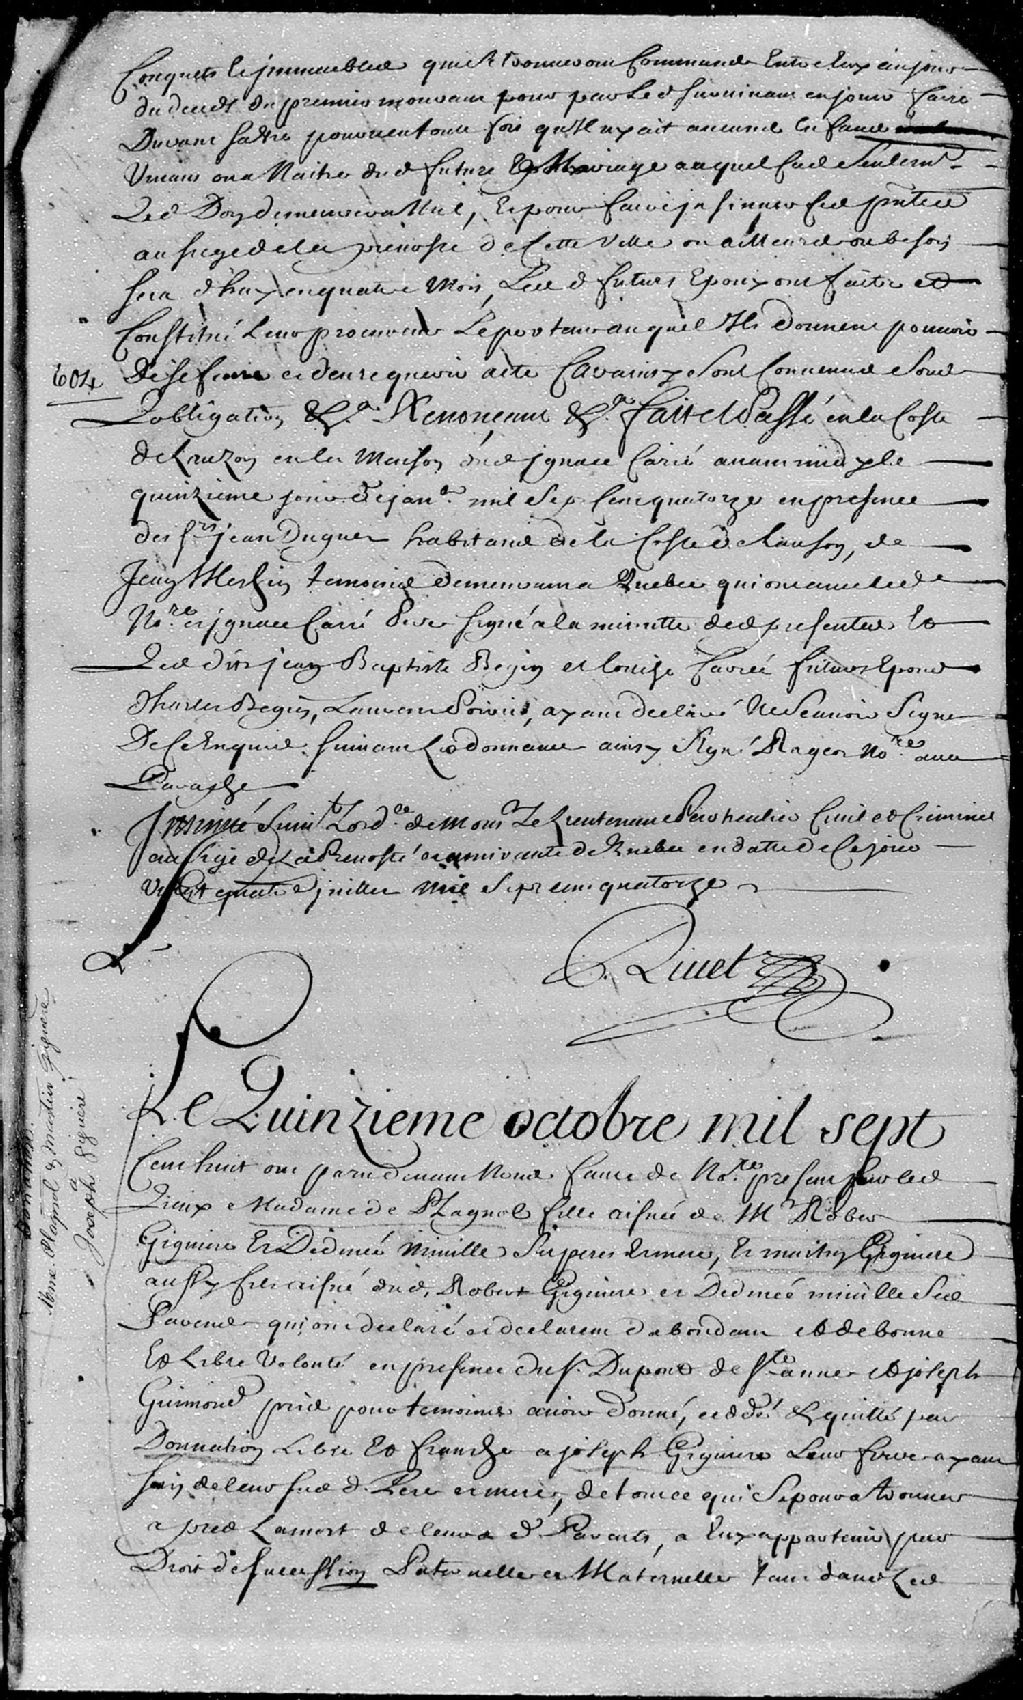 Conquets le jmmeubles qui se trouveront Commande Entre Eux au jour
du deceds du premier mourant pour par led survivant en jouir sa vie
Durant pourveu toute fois qu'Il n'y ait aucuns Enfans
Vivans ou a Naitre dud futur Mariage auquel cas Seulemt
Led Don demeurera Nul, Et pour faire jnsinuer Ced pntes
au siege de la prevosté de Cette Ville ou ailleurs ou besoin
sera dhuy en quatre Mois, Lesd futurs Epoux ont fait et
Constitué Leur procureur Le porteur auquel Ils donnent pouvoir
604
De ce faire et d'en requerir acte Car ainsy Sont Convenus Sous
L'obligation &a Renonçant &a fait et Passé en la Coste
de Lauzon en la Maison dud jgnace Carié avant midy le
quinzieme jour de janer mil Sept Cens quatorze en presence
des srs jean Duguet habitant de la Coste de Lauson, de
Jean Meshin temoins demeurant a Quebec qui ont avec led
Nore et jgnace Carié Pere signé a la minutte des presentes Et
Lesd dits jean Baptiste Begin et Louise Carrié futurs Epoux
Charles Begin, Laurent Poiré, ayant declaré Ne Scavoir Signer
De Ce Enquis suivant L'ordonnance ainsy Signé Rageot Nore avec
Paraphe
Insinué suivt Lorde de Monsr Le Lieutenant Particulier Civil et Criminel
au siege de La Prevosté et amirauté de Quebec en datte de Ce jour
Vingt quatre juillet mil Sept cens quatorze
Rivet
Donnation
Mme Plagnol & martin Gigniere
a Joseph Gigniere
Le Quinzieme octobre mil sept
Cens huit ont paru devant Nous faute de Nore present sur les
Lieux Madame de Plagnol fille aisnée de Mr Rober
Gigniere Et Dedmée Miville Ses peres Et mere, Et martin Gigniere
aussy fils aisné dud. Robert Gigniere et Dedmée miville Ses
Parens qui ont declaré et declarent d'abondant et de bonne
Et Libre Volonté en presence du sr. Dupont de Ste anne et joseph
Guimond pris pour temoins avoir donné, cedé & quitté par
Donnation Libre Et franche a joseph Gigniere Leur frere ayant
soin de leur susd. Pere et mere, de tout ce qui Se poura trouver
apres La mort de leurs d. Parents, a Eux appartenir par
Droit de succession Paternelle et Maternelle tant dans Les